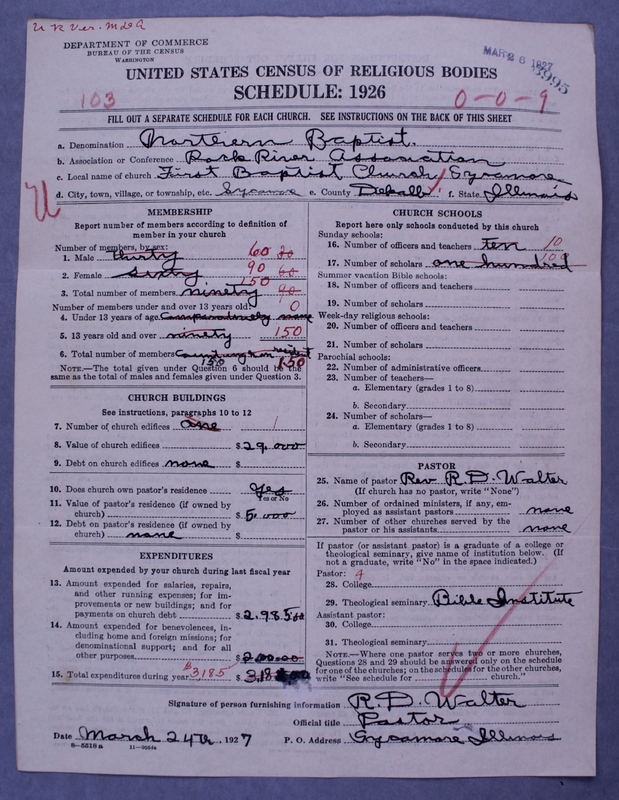 DEPARTMENT OF COMMERCE
BUREAU OF THE CENSUS
WASHINGTON
MAR 26 1927
UNITED STATES CENSUS OF RELIGIOUS BODIES
SCHEDULE: 1926
103
0-0-9
FILL OUT A SEPARATE SCHEDULE FOR EACH CHURCH. SEE INSTRUCTIONS ON THE BACK OF THIS SHEET
a. Denomination Northern Baptist.
b. Association or Conference Rock River Association
c. Local name of church First Baptist Church Sycamore
d. City, town, village, or township, etc. Sycamore e. County DeKalb f. State Illinois
MEMBERSHIP
Report number of members according to definition of
member in your church
Number of members, by sex:
1. Male thirty 60 30
2. Female sixty 90 60
150
3. Total number of members ninety 90
Number of members under and over 13 years old: 0
4. Under 13 years of age Comparatively none
5. 13 years old and over ninety 150
6. Total number of members Counting non resident
150 150
NOTE.—The total given under Question 6 should be the
same as the total of males and females given under Question 3.
CHURCH BUILDINGS
See instructions, paragraphs 10 to 12
7. Number of church edifices one 1
8. Value of church edifices $ 29,000
9. Debt on church edifices none $
10. Does church own pastor's residence Yes
Yes or No
11. Value of pastor's residence (if owned by
church) $ 5000
12. Debt on pastor's residence (if owned by
church) none $
EXPENDITURES
Amount expended by your church during last fiscal year
13. Amount expended for salaries, repairs,
and other running expenses; for im-
provements or new buildings; and for
payments on church debt $ 2,985.00
14. Amount expended for benevolences, in-
cluding home and foreign missions; for
denominational support; and for all
other purposes $ 200.00
15. Total expenditures during year $3185 $
CHURCH SCHOOLS
Report here only schools conducted by this church
Sunday schools:
16. Number of officers and teachers ten 10
17. Number of scholars one hundred 100
Summer vacation Bible schools:
18. Number of officers and teachers
19. Number of scholars
Week-day religious schools:
20. Number of officers and teachers
21. Number of scholars
Parochial schools:
22. Number of administrative officers
23. Number of teachers—
a. Elementary (grades 1 to 8)
b. Secondary
24. Number of scholars—
a. Elementary (grades 1 to 8)
b. Secondary
PASTOR
25. Name of pastor Rev R. D. Walter
(If church has no pastor, write "None")
26. Number of ordained ministers, if any, em-
ployed as assistant pastors none
27. Number of other churches served by the
pastor or his assistants none
If pastor (or assistant pastor) is a graduate of a college or
theological seminary, give name of institution below. (If
not a graduate, write "No" in the space indicated.)
Pastor: 4
28. College
29. Theological seminary Bible Institute
Assistant pastor:
30. College
31. Theological seminary
NOTE.—Where one pastor serves two or more churches,
Questions 28 and 29 should be answered only on the schedule
for one of the churches; on the schedules for the other churches,
write "See schedule for church."
Signature of person furnishing information R. D. Walter
Official title Pastor
Date March 24th, 1927 P. O. Address Sycamore Illinois
8-5518a